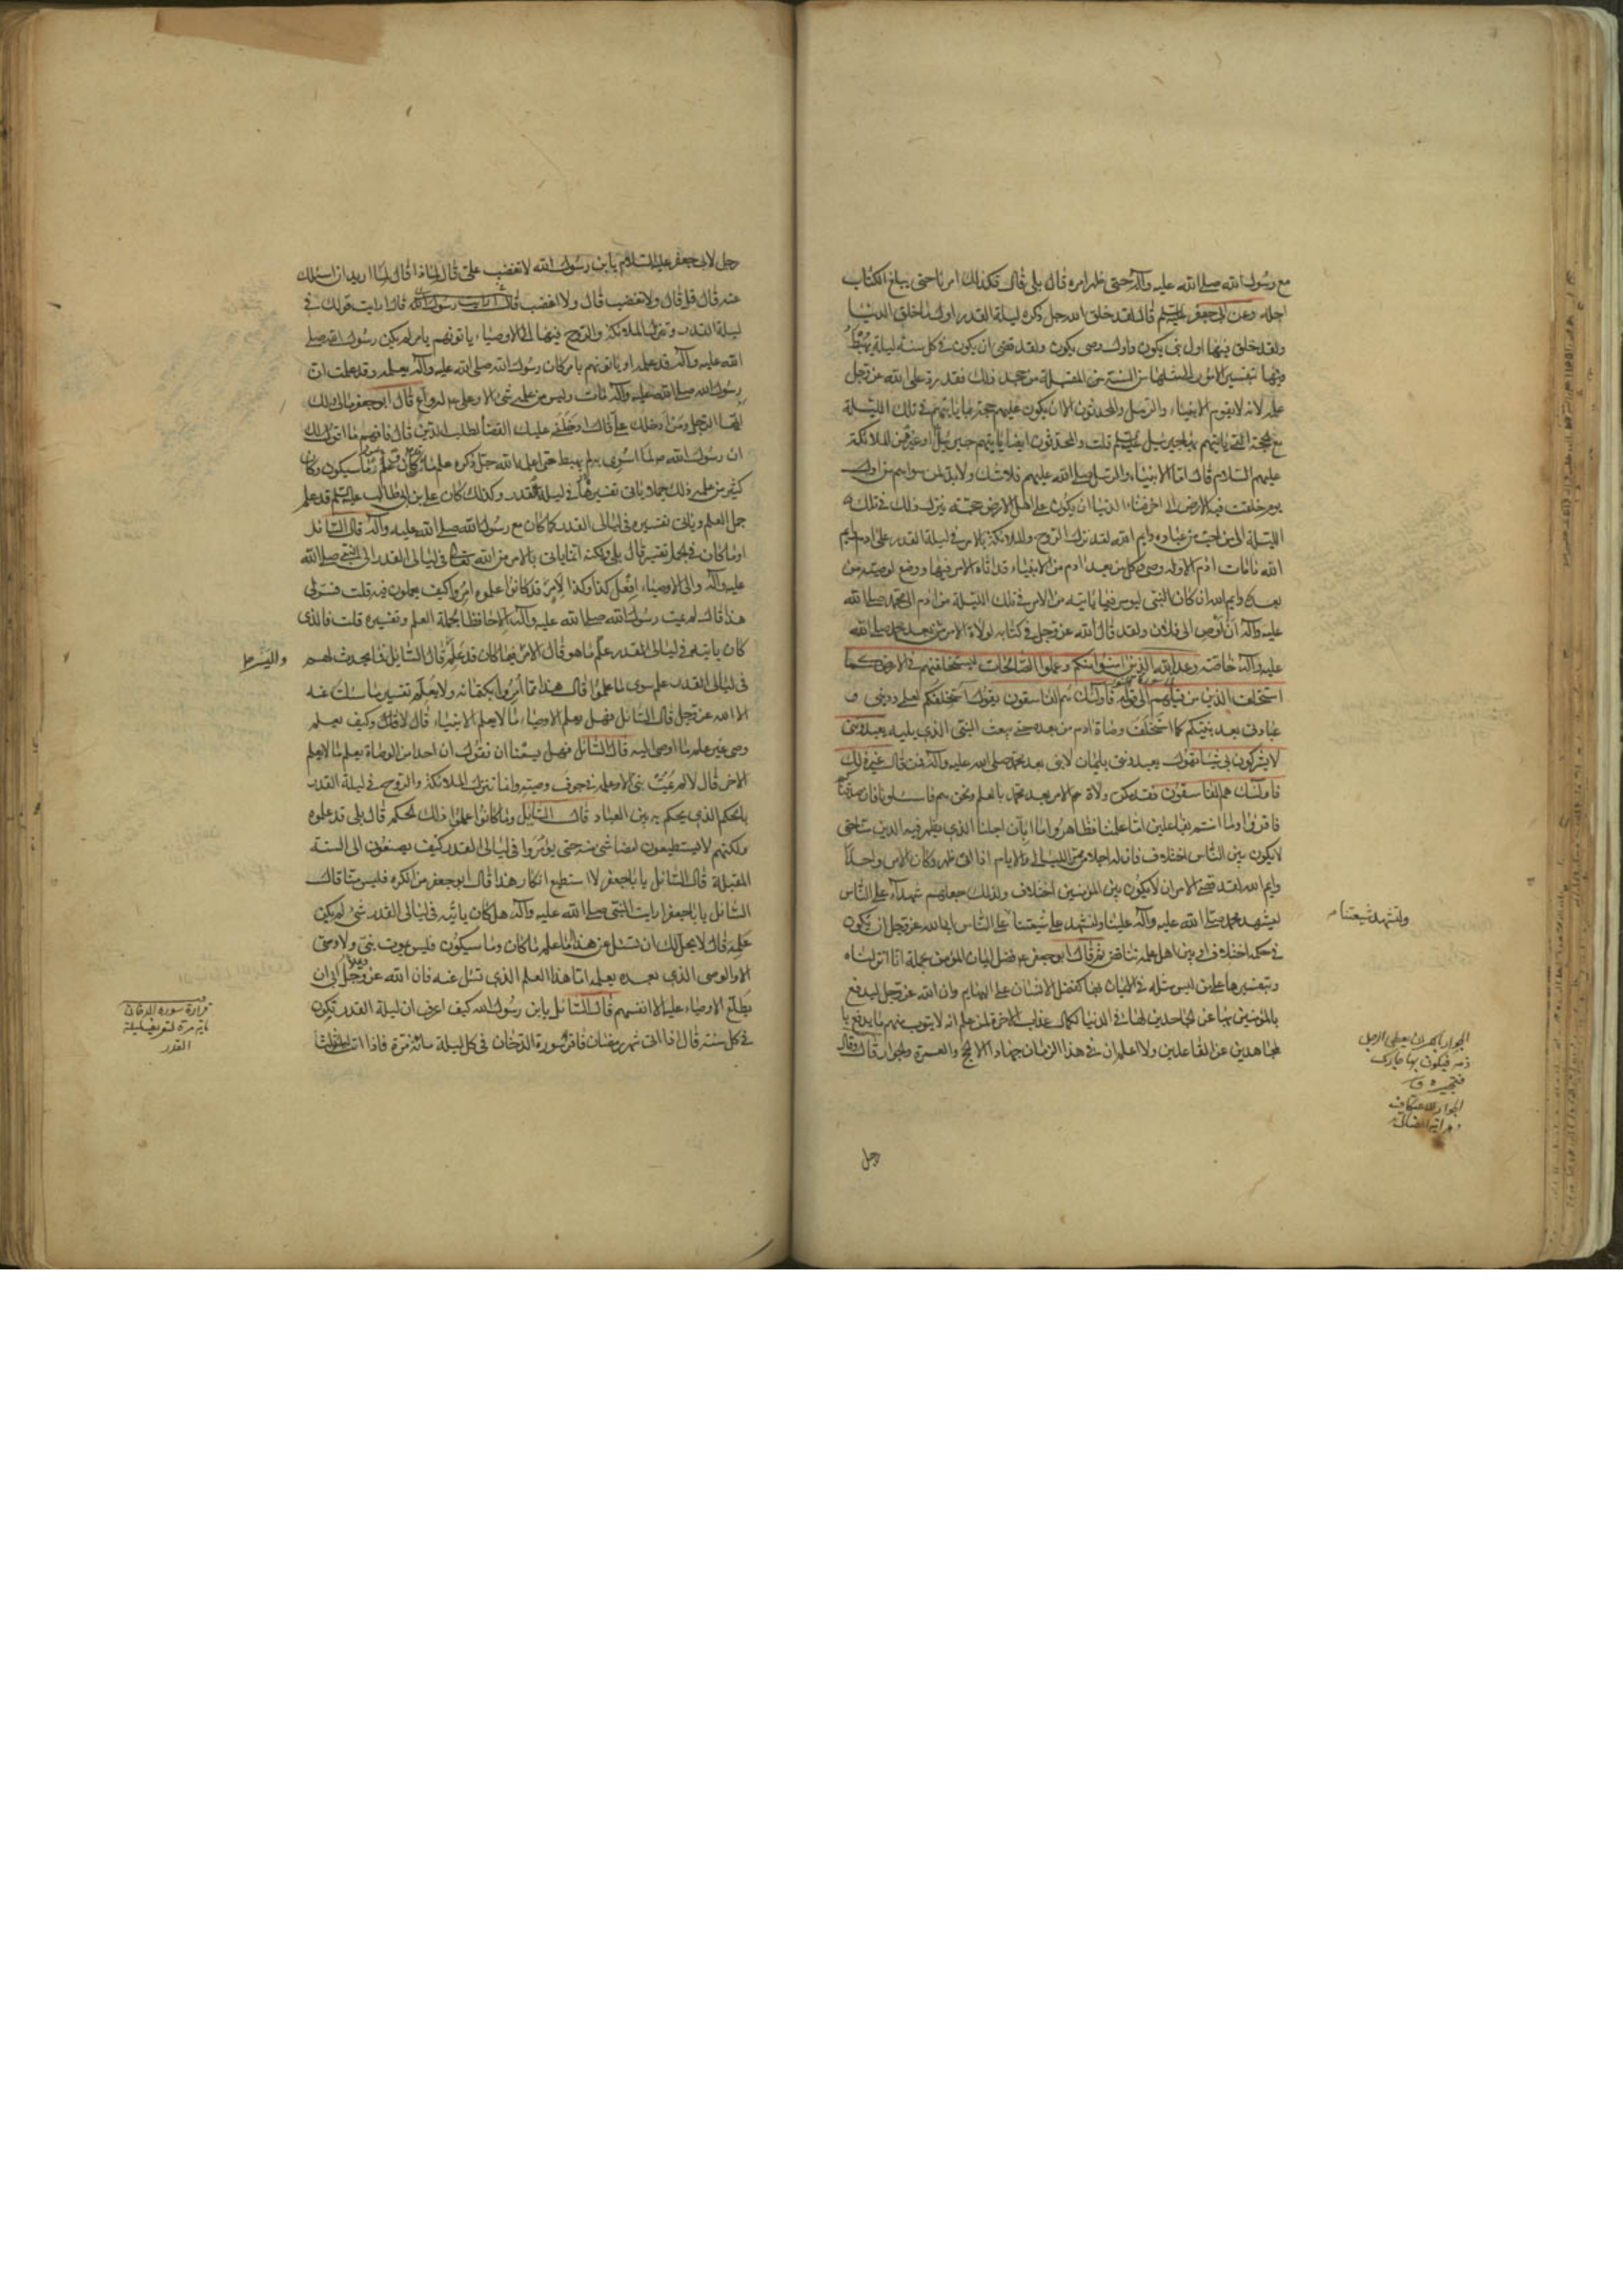 مع رسول الله صلى الله عليه وآله حتى ظهر امره قال بلى قال فكذلك امرنا حتى يبلغ الكتاب
اجله وعن ابى جعفر عليه السلم قال لقد خلق الله جل ذكره ليلة القدر اول ما خلق الدنيا
ولقد خلق فيها اول نبى يكون واول وصى يكون ولقد قضى ان يكون فى كل سنة ليلة يهبط
فيها تفسير الامور الى مثلها من السنة المقبلة من جحد ذلك فقد رد على الله عز وجل
علمه لانه لا يقوم الانبياء والرسل والمحدثون الا ان يكون عليهم حجة بما ياتيهم فى تلك الليلة
مع الحجة التى ياتيهم بها جبرئيل عليه السلم قلت والمحدثون ايضا ياتيهم جبرئيل او غيره من الملائكة
عليهم السلام قال اما الانبياء والرسل صلى الله عليهم فلا شك ولا بد لمن سواهم من اول
يوم خلقت فيه الارض الى اخر فناء الدنيا ان يكون على اهل الارض حجة ينزل ذلك فى تلك
الليلة الى من احب من عباده وايم الله لقد نزل الروح والملائكة بالامر فى ليلة القدر على ادم وايم
الله ما مات ادم الا وله وصى وكل من بعد ادم من الانبياء قد اتاه الامر فيها ووضع لوصيه من
بعده وايم الله ان كان النبى ليؤمر فيما ياتيه من الامر فى تلك الليلة من ادم الى محمد صلى الله
عليه وآله ان اوص الى فلان ولقد قال الله عز وجل فى كتابه لولاة الامر من بعد محمد صلى الله
عليه وآله خاصة وعد الله الذين امنوا منكم وعملوا الصالحات ليستخلفنهم فى الارض كما
استخلف الذين من قبلهم الى قوله فاولئك هم الفاسقون يقول استخلفكم لعلمى ودينى و
عبادتى بعد نبيكم كما استخلف وصاة ادم من بعده حتى يبعث النبى الذى يليه يعبدوننى
لا يشركون بى شيئا يقول يعبدوننى بايمان لا نبى بعد محمد صلى الله عليه وآله فمن قال غير ذلك
فاولئك هم الفاسقون فقد مكن ولاة الامر بعد محمد بالعلم ونحن هم فاسئلونا فان صدقناكم
فاقروا وما انتم بفاعلين اما علمنا فظاهر واما ابان اجلنا الذى يظهر فيه الدين منا حتى
لا يكون بين الناس اختلاف فان له اجلا من ممر الليالى والايام اذا اتى ظهر وكان الامر واحدا
وايم الله لقد قضى الامر ان لا يكون بين المؤمنين اختلاف ولذلك جعلهم شهداء على الناس
ليشهد محمد صلى الله عليه وآله علينا ولنشهد على شيعتنا على الناس ابى الله عز وجل ان يكون
فى حكمه اختلاف او بين اهل علمه تناقض ثم قال ابو جعفر ع فضل ايمان المؤمن بجملة انا انزلناه
وبتفسيرها على من ليس مثله فى الايمان بها كفضل الانسان على البهايم وان الله عز وجل ليدفع
بالمؤمنين بها عن الجاحدين لها فى الدنيا لكمال عذاب الاخرة لمن علم انه لا يتوب منهم ما يدفع
بالمجاهدين عن القاعدين ولا اعلم ان فى هذا الزمان جهادا الا الحج والعمرة والجوار قال وقال
ولتشهد شيعتنا
الجوار بالكسر ان يعطى الرجل
ذمة فيكون بها جارك
فتجيره ق
الجوار الاعتكاف
رجل
رجل لابى جعفر عليه السلام يا ابن رسول الله لا تغضب على قال لماذا قال لما اريد ان اسئلك
عنه قال قل قال ولا تغضب قال ولا اغضب قال ارايت قولك فى
ليلة القدر وتنزل الملائكة والروح فيها الى الاوصياء ياتونهم بامر لم يكن رسول الله صلى
الله عليه وآله قد علمه او ياتونهم بامر كان رسول الله صلى الله عليه وآله يعلمه وقد علمت ان
رسول الله صلى الله عليه وآله مات وليس من علمه شئ الا وعلى ع له واع قال ابو جعفر ما لى ولك
ايها الرجل ومن ادخلك على قال ادخلنى عليك القضاء لطلب الدين قال فافهم ما اقول لك
ان رسول الله ص لما اسرى به لم يهبط حتى اعلمه الله جل ذكره علم ما قد كان وما سيكون وكان
كثير من علمه ذلك جملا وياتى تفسيرها فى ليلة القدر وكذلك كان على بن ابى طالب عليه السلم قد علم
جمل العلم وياتى تفسيره فى ليالى القدر كما كان مع رسول الله صلى الله عليه وآله قال السائل
او ما كان فى الجمل تفسير قال بلى ولكنه انما ياتى بالامر من الله تعالى فى ليالى القدر الى النبى صلى الله
عليه وآله والى الاوصياء افعل كذا وكذا لامر قد كانوا علموه امروا كيف يعملون فيه قلت فسر لى
هذا قال لم يمت رسول الله صلى الله عليه وآله الا حافظا لجملة العلم وتفسيره قلت فالذى
كان ياتيه فى ليالى القدر علم ما هو قال الامر فيما كان قد علم قال السائل فما يحدث لهم
واليسر
فى ليالى القدر علم سوى ما علموا قال هذا مما امروا بكتمانه ولا يعلم تفسير ما سئلت عنه
الا الله عز وجل قال السائل فهل يعلم الاوصياء ما لا يعلم الانبياء قال لا وكيف يعلم
وصى غير علم ما اوصى اليه قال السائل فهل يسعنا ان نقول ان احدا من الوصاة يعلم ما لا يعلم
الاخر قال لا لم يمت نبى الا وعلمه فى جوف وصيه وانما تنزل الملائكة والروح فى ليلة القدر
بالحكم الذى يحكم به بين العباد قال السايل وما كانوا علموا ذلك الحكم قال بلى قد علموه
ولكنهم لا يستطيعون امضاء شئ منه حتى يؤمروا فى ليالى القدر كيف يصنعون الى السنة
المقبلة قال السائل يا با جعفر لا استطيع انكار هذا قال ابو جعفر من انكره فليس منا قال
السائل يا با جعفر ارايت النبى صلى الله عليه وآله هل كان ياتيه فى ليالى القدر شئ لم يكن
علمه قال لا يحل لك ان تسئل عن هذا اما علم ما كان وما سيكون فليس يموت نبى ولا وصى
الا والوصى الذى بعده يعلمه اما هذا العلم الذى تسئل عنه فان الله عز وجل ابى ان
يطلع الاوصياء عليه الا انفسهم قال السائل يا ابن رسول الله كيف اعرف ان ليلة القدر تكون
فى كل سنة قال اذا اتى شهر رمضان فاقرأ سورة الدخان فى كل ليلة مائة مرة فاذا اتت
قراءة سورة الدخان
ماية مرة لتعريف ليلة
القدر